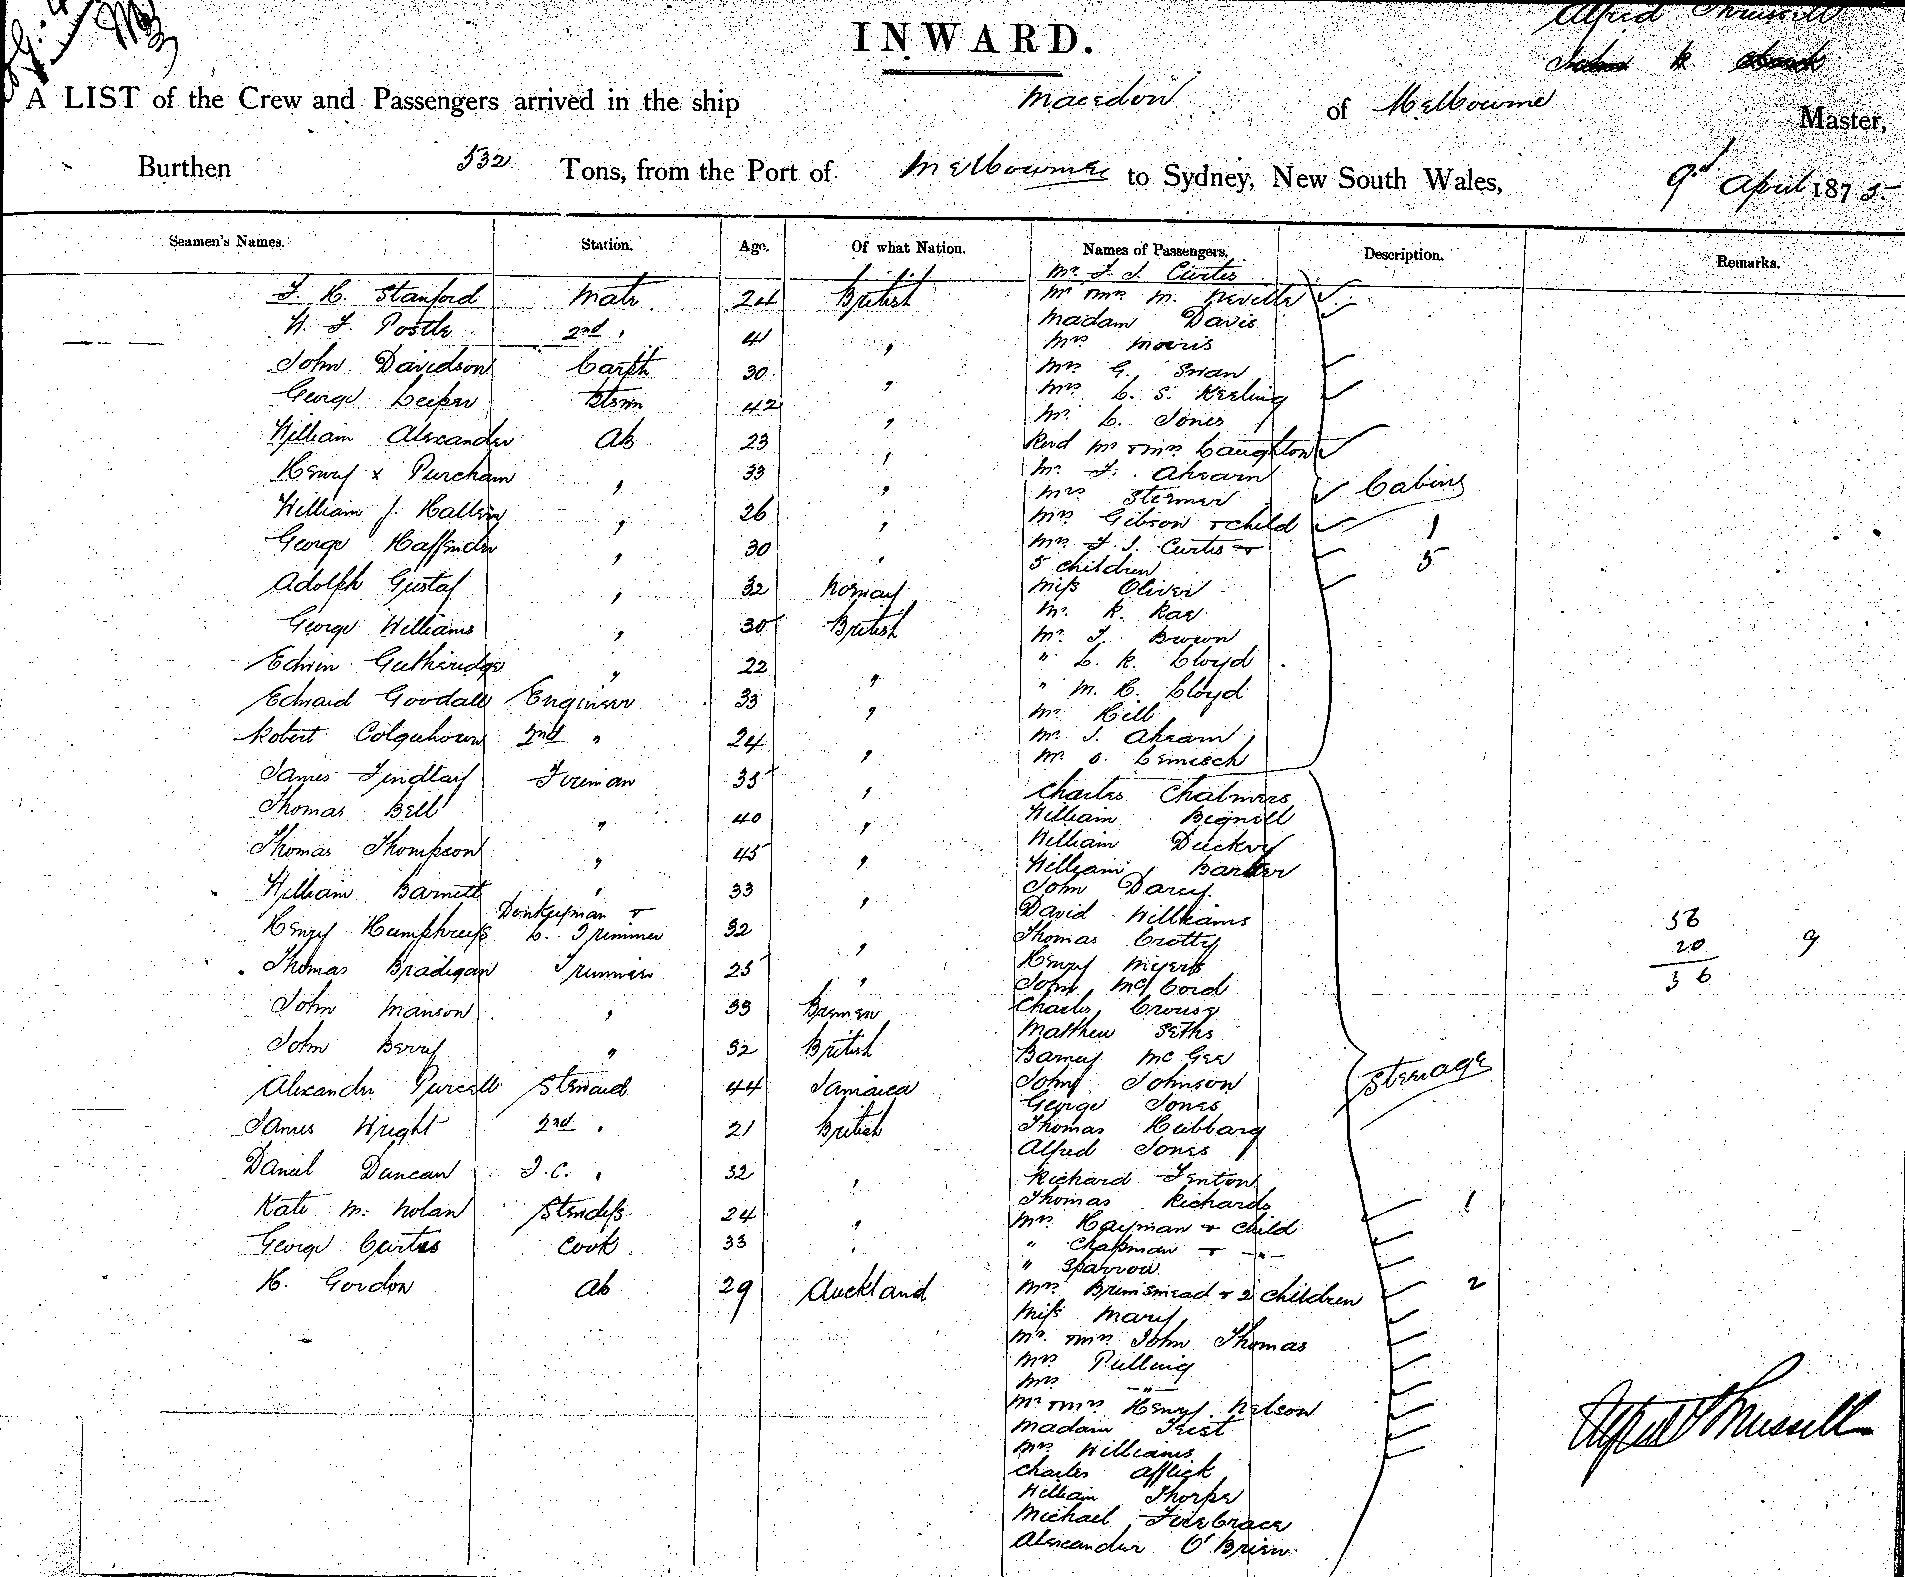 INWARD.
Alfred Thrussell
A LIST of the Crew and Passengers arrived in the ship Macedon of Melbourne Master,
Burthen 532 Tons, from the Port of Melbourne to Sydney, New South Wales, 9th April 1875
Seamen's Names. Station. Age. Of what Nation. Names of Passengers. Description. Remarks.
Mr J. J. Curtis
F. H. Stanford Mate 24 British Mr & Mrs M. Neville
Madam Davis
W. J. Postle 2nd " 41 " Mrs Morris
John Davidson Carptr 30 " Mrs G. Swan
George Leeper 42 " Mrs C. S. Keeling
Mr C. Jones
William Alexander Ab 23 " Revd Mr & Mrs Laughton
Henry x Purcham " 33 " Mr J. Ahearn
Mrs Stermer Cabins
William J. Hallen " 26 " Mrs Gibson & child 1
George Haffender " 30 " Mrs J. J. Curtis &
5 children 5
Adolph Gustaf " 32 Norway Miss Oliver
Mr R. Rae
George Williams " 30 British Mr J. Brown
Edwin Gutheridge " 22 " " C. R. Lloyd
Edward Goodall Engineer 33 " " M. H. Lloyd
Mr Hill
Robert Colquhoun 2nd " 24 " Mr J. Ahearn
Mr O. Lemisch
James Findlay Fireman 35 " Charles Chalmers
Thomas Bell " 40 " William Bignell
William Duckry
Thomas Thompson " 45 " William Barker
William Barnett " 33 " John Darcy
Donkeyman & David Williams
Henry Humphreys C. Trimmer 32 " Thomas Crotty
56
20 9
36
Thomas Bradigan Trimmer 25 " Henry Myers
John McCord
John Manson " 33 Bremen Charles Crouse
Matthew Seths
John Berry " 32 British Barney McGee
Alexander Purcell Steward 44 Jamaica John Johnson Steerage
George Jones
James Wright 2nd " 21 British Thomas Hubbard
Alfred Jones
Daniel Duncan F.C. " 32 " Richard Fenton
Thomas Richards
Kate M. Nolan Stewdess 24 " Mrs Hayman & child 1
George Curtis Cook 33 " " Chapman & "
" Sparrow
H. Gordon Ab 29 Auckland Mrs Brinsmead & 2 children 2
Miss Mary
Mr & Mrs John Thomas
Mrs Pulling
Mrs "
Mr & Mrs Henry Nelson
Madam Frist
Mrs Williams
Charles Afflick
William Thorpe
Michael Firebrace
Alexander O'Brien
Alfred Thrussell